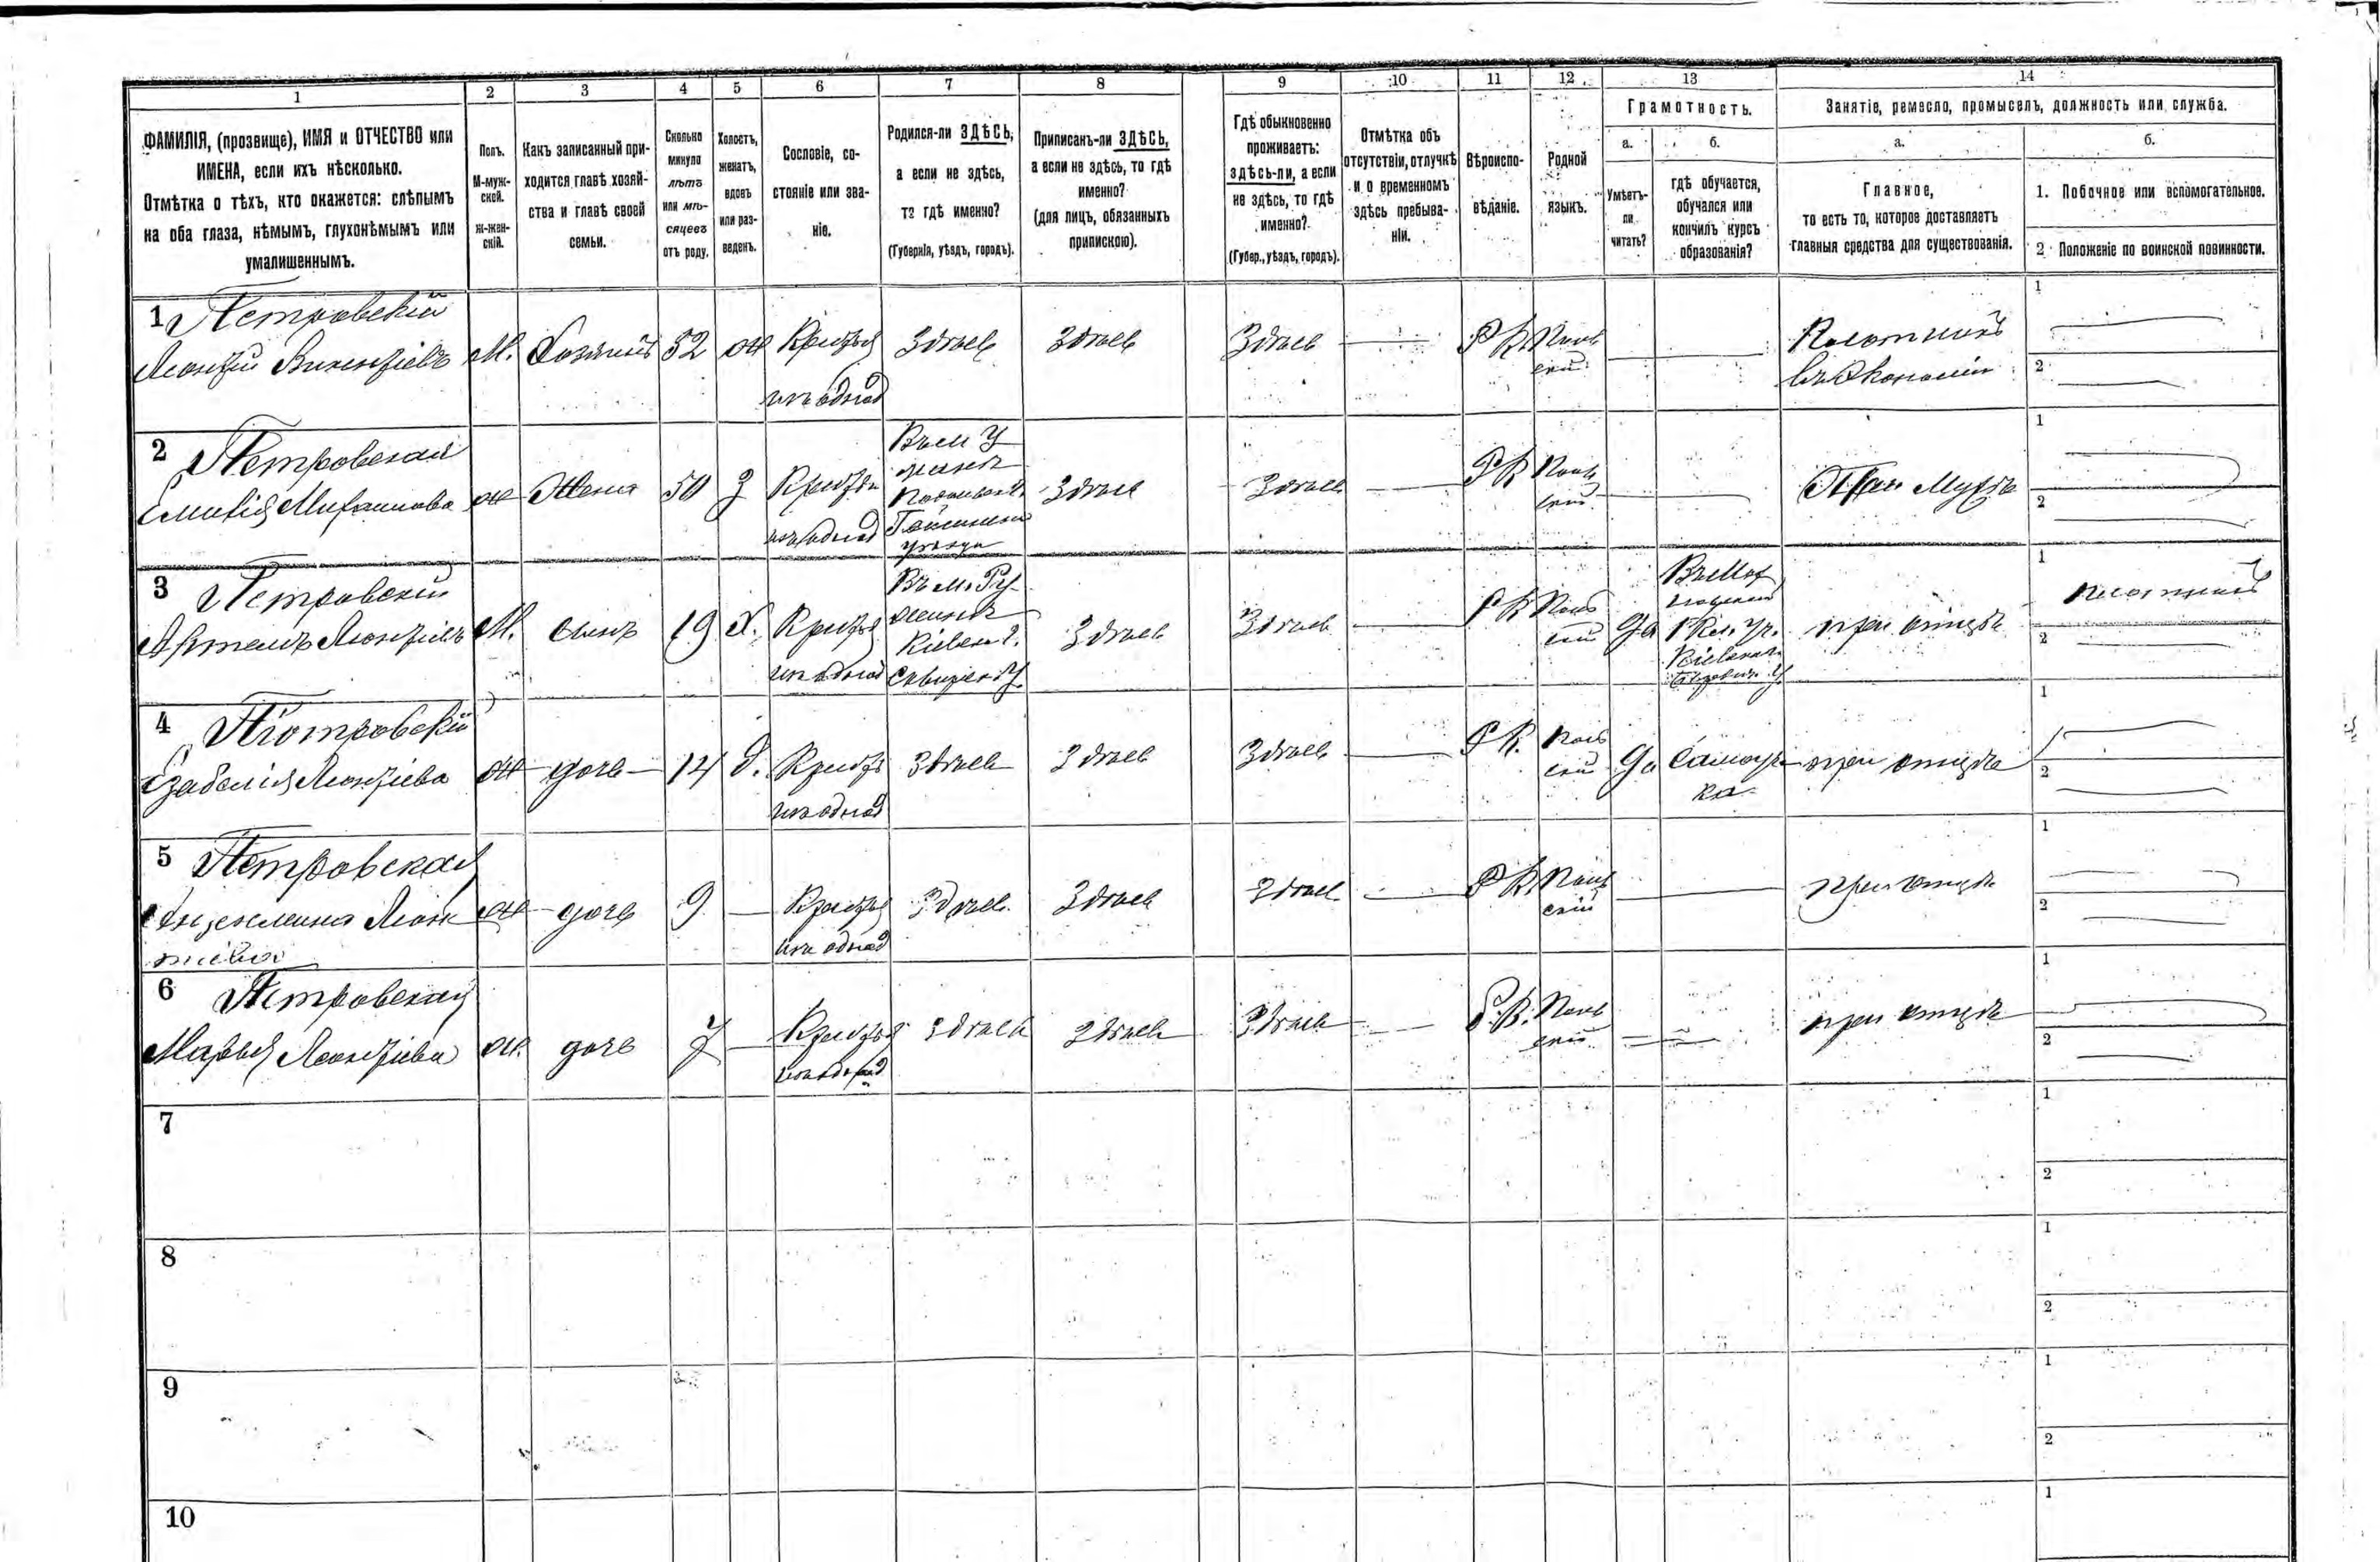 1 2 3 4 5 6 7 8 9 10 11 12 13 14
ФАМИЛІЯ, (прозвище), ИМЯ и ОТЧЕСТВО или
ИМЕНА, если ихъ нѣсколько.
Отмѣтка о тѣхъ, кто окажется: слѣпымъ
на оба глаза, нѣмымъ, глухонѣмымъ или
умалишеннымъ.
Полъ.
М-муж-
ской.
Ж-жен-
скій.
Какъ записанный при-
ходится главѣ хозяй-
ства и главѣ своей
семьи.
Сколько
минуло
лѣтъ
или мѣ-
сяцевъ
отъ роду.
Холостъ,
женатъ,
вдовъ
или раз-
веденъ.
Сословіе, со-
стояніе или зва-
ніе.
Родился-ли ЗДѢСЬ,
а если не здѣсь,
то гдѣ именно?
(Губернія, уѣздъ, городъ).
Приписанъ-ли ЗДѢСЬ,
а если не здѣсь, то гдѣ
именно?
(для лицъ, обязанныхъ
припискою).
Гдѣ обыкновенно
проживаетъ:
здѣсь-ли, а если
не здѣсь, то гдѣ
именно?
(Губер., уѣздъ, городъ).
Отмѣтка объ
отсутствіи, отлучкѣ
и о временномъ
здѣсь пребыва-
ніи.
Вѣроиспо-
вѣданіе.
Родной
языкъ.
Грамотность.
а.
Умѣетъ-
ли
читать?
б.
гдѣ обучается,
обучался или
кончилъ курсъ
образованія?
Занятіе, ремесло, промыселъ, должность или служба.
а.
Главное,
то есть то, которое доставляетъ
главныя средства для существованія.
б.
1. Побочное или вспомогательное.
2 Положеніе по воинской повинности.
1 Петровскій
Леонтій Викентіевъ М. Хозяинъ 52 ж Крестья Здѣсь Здѣсь Здѣсь Р К Поль
ский
изъ однод
Плотникъ
въ Экономіи
1
2
2 Петровская
ж Жена 50 З Крестья
изъ однод
Въ м
Подольск
Гайсинск
уѣзда
Здѣсь Здѣсь Р К Поль
ский
При Мужѣ
1
2
3 Петровскій
Леонтіевъ М. сынъ 19 Х. Крестья
изъ однод
Въ м. Ру
жинѣ
Кіевск г.
Сквирск У
Здѣсь Здѣсь Р К Поль
ский Да
1 Кл. Уч.
Кіевск г.
при отцѣ
1 плотникъ
2
4 Петровскій
Езабелія Леонтіева ж дочь 14 д. Крестья
изъ однод
Здѣсь Здѣсь Здѣсь Р К. Поль
ский Да Самоуч
ка
при отцѣ
1
2
5 Петровская
Леон
тіева
ж дочь 9 Крестья
изъ однод
Здѣсь Здѣсь Здѣсь Р К Поль
скій
при отцѣ
1
2
6 Петровская
Марья Леонтіева ж. дочь 7 Крестья
изъ однод
Здѣсь Здѣсь Здѣсь Р.К. Поль
ский
при отцѣ
1
2
7
1
2
8
1
2
9
1
2
10
1